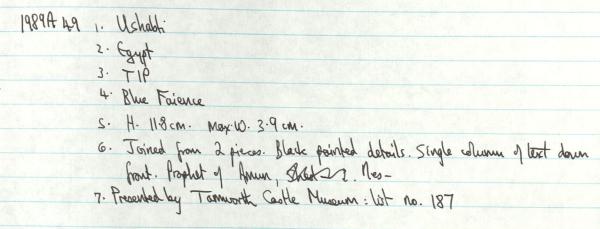 1989A49 1. Ushabti
2. Egypt
3. TIP
4. Blue Faience
5. H. 11.8cm. Max.W. 3.9cm.
6. Joined from 2 pieces. Black painted details. Single column of text down
front. Prophet of Amun, Nes-
7. Presented by Tamworth Castle Museum: list no. 187